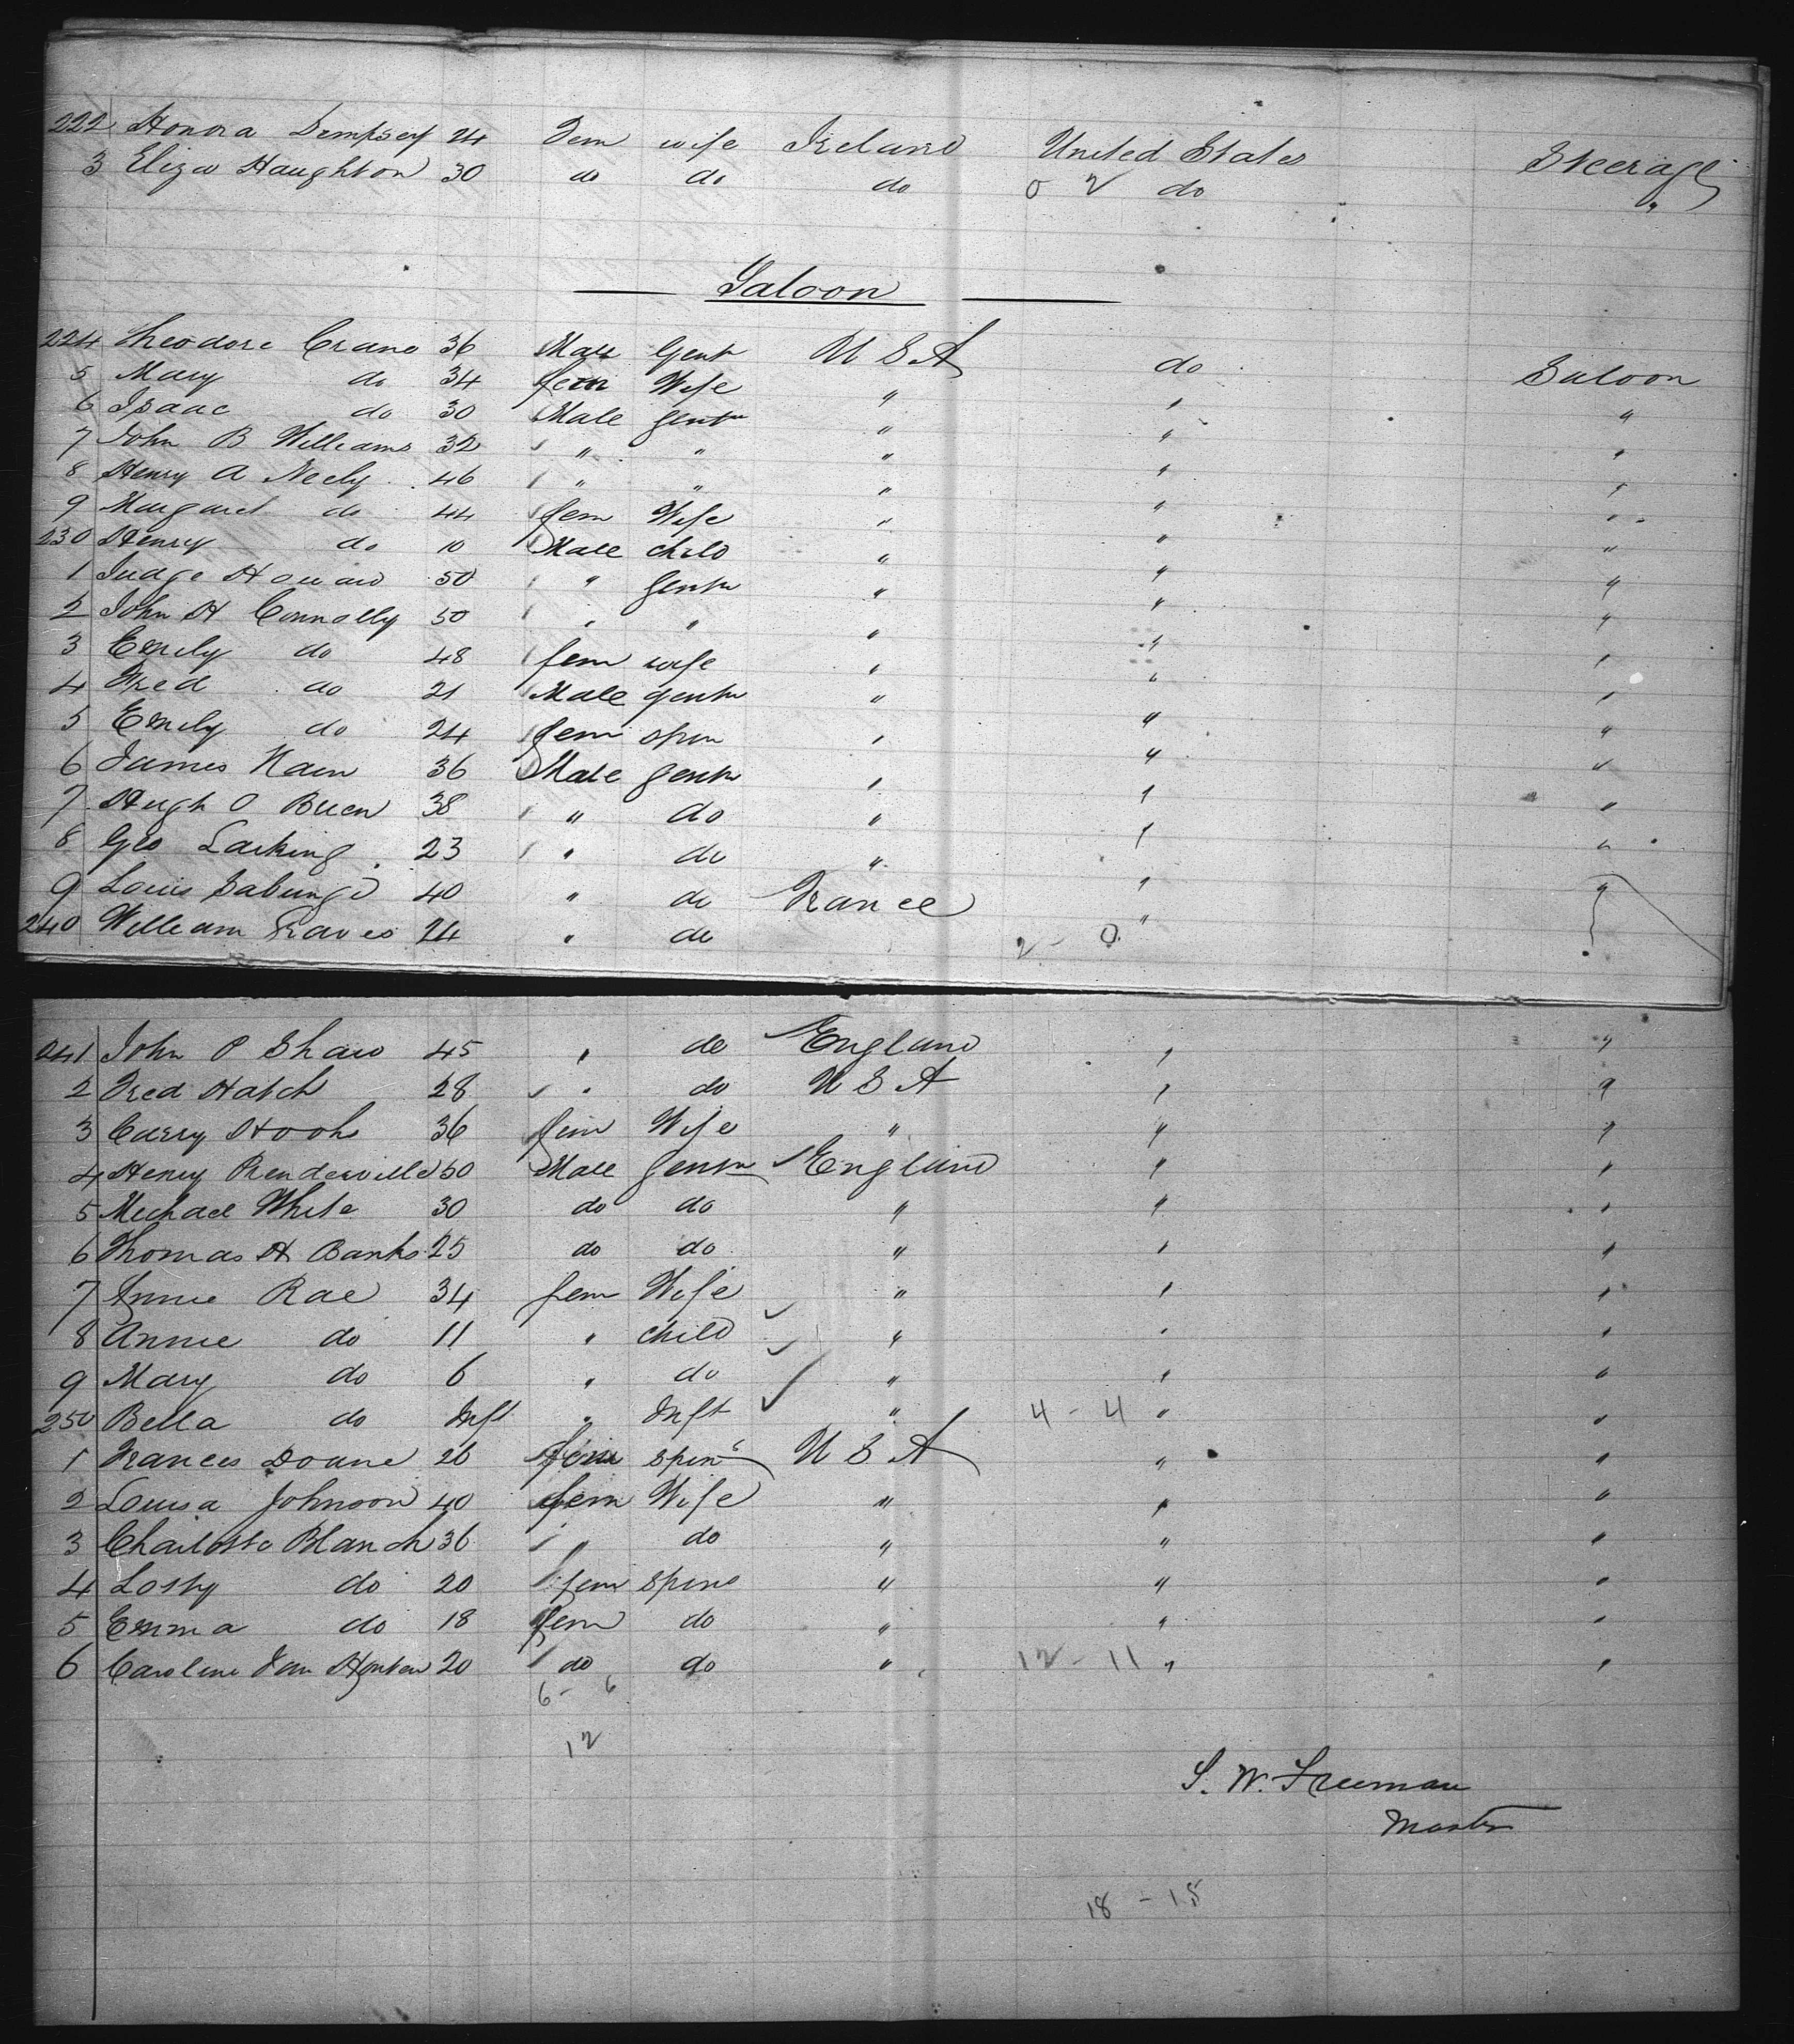 222 Honora Dempsey 24 Fem wife Ireland United States Steerage
3 Eliza Haughton 30 do do do 0 2 do "
Saloon
224 Theodore Crane 36 Male Gent U S A do Saloon
5 Mary do 34 fem Wife " " "
6 Isaac do 30 Male Gentn " " "
7 John B Williams 32 " " " " "
8 Henry A Neely 46 " " " " "
9 Margaret do 44 fem Wife " " "
230 Henry do 10 Male child " " "
1 Judge Howard 50 " Gentn " " "
2 John H Connolly 50 " " " " "
3 Emily do 48 fem wife " " "
4 Fred do 21 Male gentn " " "
5 Emily do 24 fem spin " " "
6 James Nain 36 Male Gentn " " "
7 Hugh O Brien 38 " do " " "
8 Geo Larking 23 " do " " "
9 Louis 40 " do France " "
240 William Graves 24 " do 2 - 0 " "
241 John P Shaw 45 " do England " "
2 Fred Hatch 28 " do U S A " "
3 Carry Hooh 36 fem Wife " " "
4 Henry 50 Male Gentn England " "
5 Michael White 30 do do " " "
6 Thomas H Banks 25 do do " " "
7 Annie Rae 34 fem Wife " " "
8 Annie do 11 " child " " "
9 Mary do 6 " do " " "
250 Bella do Inft " Inft " 4 - 4 " "
1 Frances Doane 26 fem spin U S A " "
2 Louisa Johnson 40 fem Wife " " "
3 Charlotte Blanch 36 " do " " "
4 Lotty do 20 fem spins " " "
5 Emma do 18 fem do " " "
6 Caroline Van Houten 20 do do " 12 - 11 " "
6 - 6
12
S. W. Freeman
Master
18 - 15